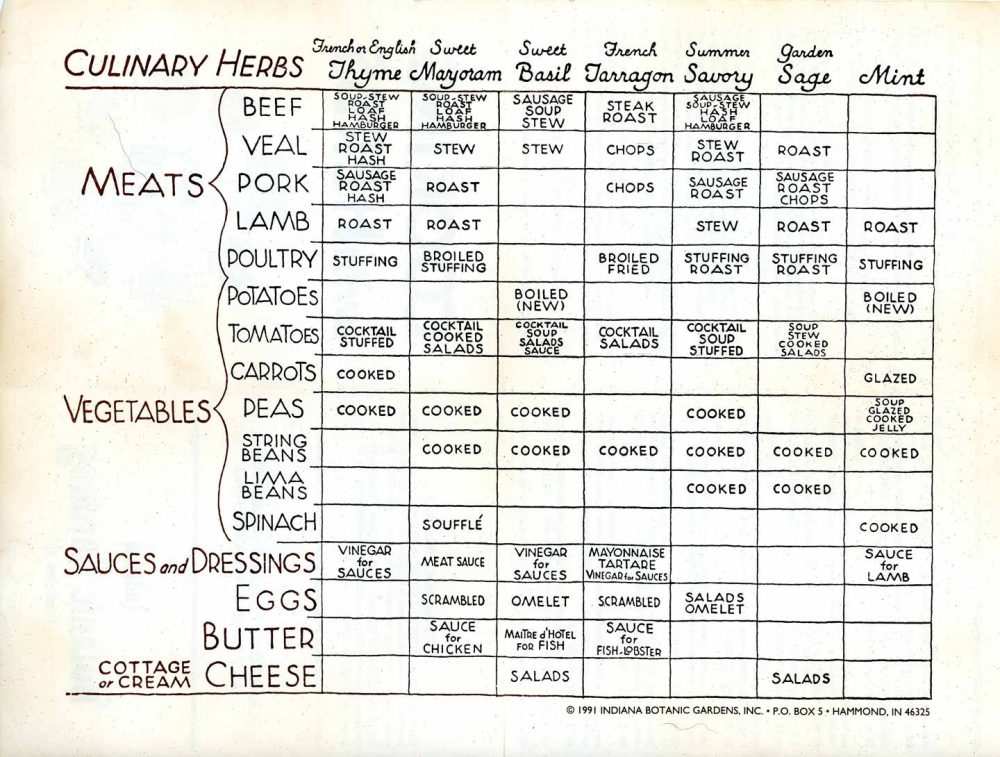 CULINARY HERBS
French or English Thyme
Sweet Mayoram
Sweet Basil
French Tarragon
Summer Savory
Garden Sage
Mint
MEATS
BEEF
SOUP-STEW
ROAST
LOAF
HASH
HAMBURGER
SOUP-STEW
ROAST
LOAF
HASH
HAMBURGER
SAUSAGE
SOUP
STEW
STEAK
ROAST
SAUSAGE
SOUP-STEW
HASH
LOAF
HAMBURGER
VEAL
STEW
ROAST
HASH
STEW
STEW
CHOPS
STEW
ROAST
ROAST
PORK
SAUSAGE
ROAST
HASH
ROAST
CHOPS
SAUSAGE
ROAST
SAUSAGE
ROAST
CHOPS
LAMB
ROAST
ROAST
STEW
ROAST
ROAST
POULTRY
STUFFING
BROILED
STUFFING
BROILED
FRIED
STUFFING
ROAST
STUFFING
ROAST
STUFFING
VEGETABLES
POTATOES
BOILED
(NEW)
BOILED
(NEW)
TOMATOES
COCKTAIL
STUFFED
COCKTAIL
COOKED
SALADS
COCKTAIL
SOUP
SALADS
SAUCE
COCKTAIL
SALADS
COCKTAIL
SOUP
STUFFED
SOUP
STEW
COOKED
SALADS
CARROTS
COOKED
GLAZED
PEAS
COOKED
COOKED
COOKED
COOKED
SOUP
GLAZED
COOKED
JELLY
STRING
BEANS
COOKED
COOKED
COOKED
COOKED
COOKED
COOKED
LIMA
BEANS
COOKED
COOKED
SPINACH
SOUFFLÉ
COOKED
SAUCES and DRESSINGS
VINEGAR
for
SAUCES
MEAT SAUCE
VINEGAR
for
SAUCES
MAYONNAISE
TARTARE
VINEGAR for SAUCES
SAUCE
for
LAMB
EGGS
SCRAMBLED
OMELET
SCRAMBLED
SALADS
OMELET
BUTTER
SAUCE
for
CHICKEN
MAITRE d'HOTEL
FOR FISH
SAUCE
for
FISH-LOBSTER
COTTAGE
or CREAM CHEESE
SALADS
SALADS
© 1991 INDIANA BOTANIC GARDENS, INC. • P.O. BOX 5 • HAMMOND, IN 46325